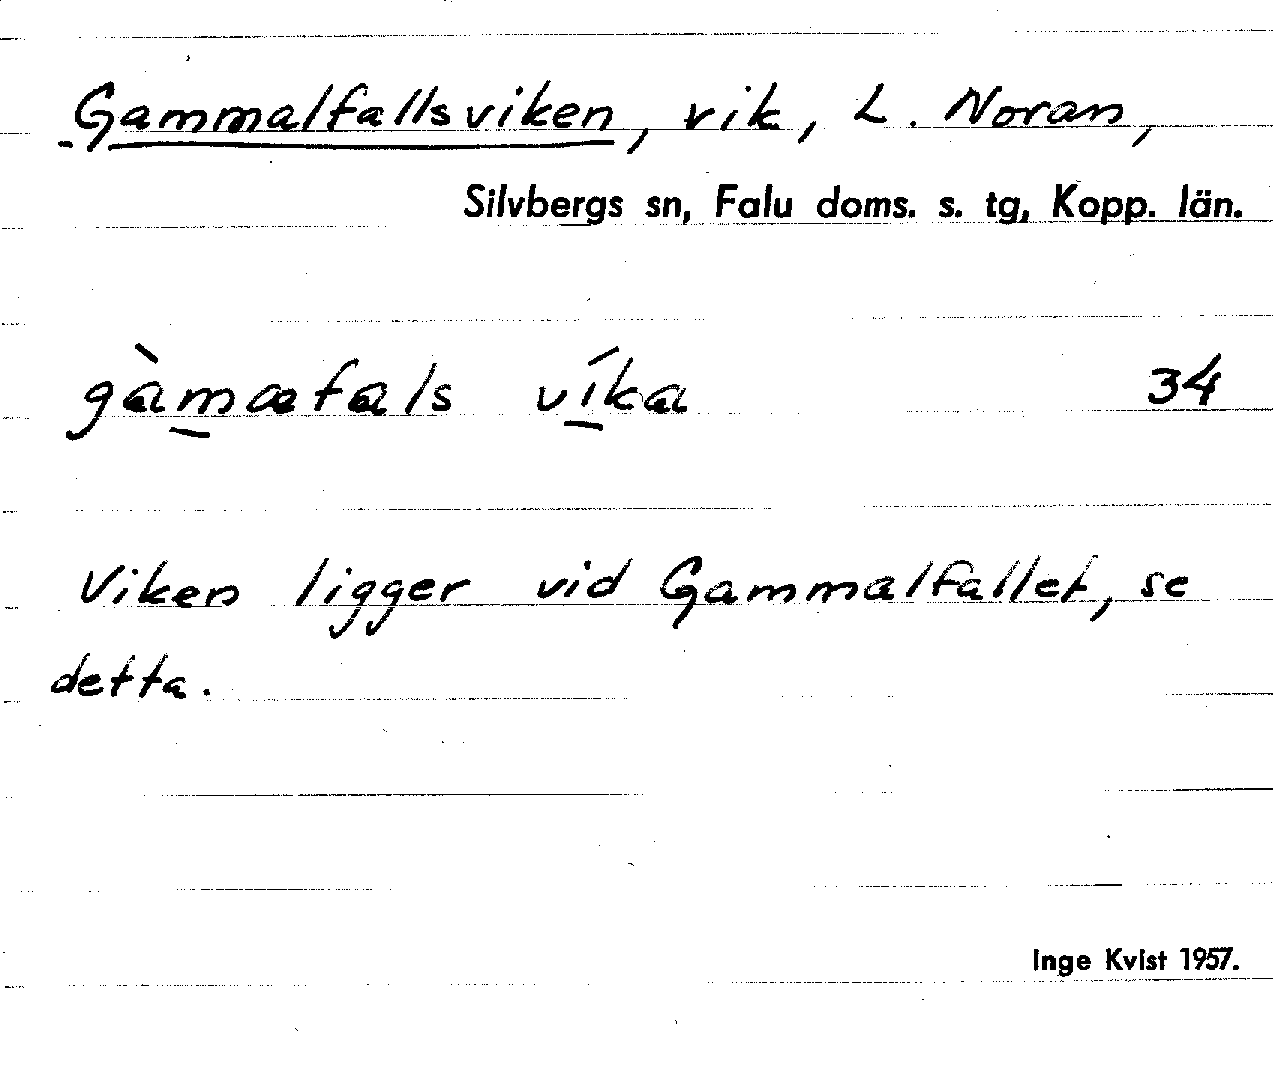 Gammalfallsviken, vik, L. Noran,
Silvbergs sn, Falu doms. s. tg, Kopp. län.
gàm̲æfals ví̲ka 34
Viken ligger vid Gammalfallet, se
detta.
Inge Kvist 1957.